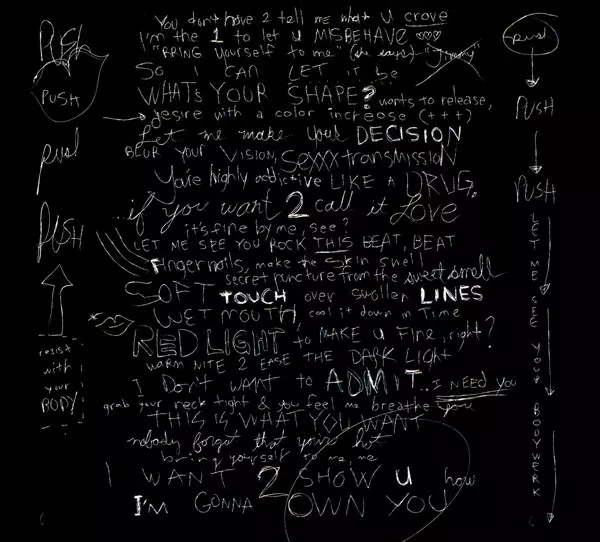 PUSH
PUSH
push
PUSH
resist
with
your
BODY!
You don't have 2 tell me what u crove
I'm the 1 to let u MISBEHAVE ♡♡♡
"BRING yourself to me" (she says) "Jimmy"
So I CAN LET it be
WHAT'S YOUR SHAPE? wants to release,
desire with a color increase (+++)
Let me make your DECISION
BLUR YOUR VISION, Sexxx transmission
You're highly addictive LIKE A DRUG.
..if you want 2 call it Love
it's fine by me, see?
LET ME SEE YOU ROCK THIS BEAT, BEAT
Fingernails, make the skin swell
secret puncture from the sweet smell
SOFT TOUCH over swollen LINES
WET MOUTH cool it down in Time
RED LIGHT to MAKE U FINE, right?
WARM NITE 2 EASE THE DARK LIGHT
I DON'T WANT to ADMIT.. I NEED YOU
grab your neck tight & you feel me breathe you
THIS IS WHAT YOU WANT
nobody forgot that you're hot
bring yourself to me, me
I WANT 2 SHOW u how
I'M GONNA OWN YOU
push
PUSH
PUSH
LET ME SEE YOUR BODYWERK